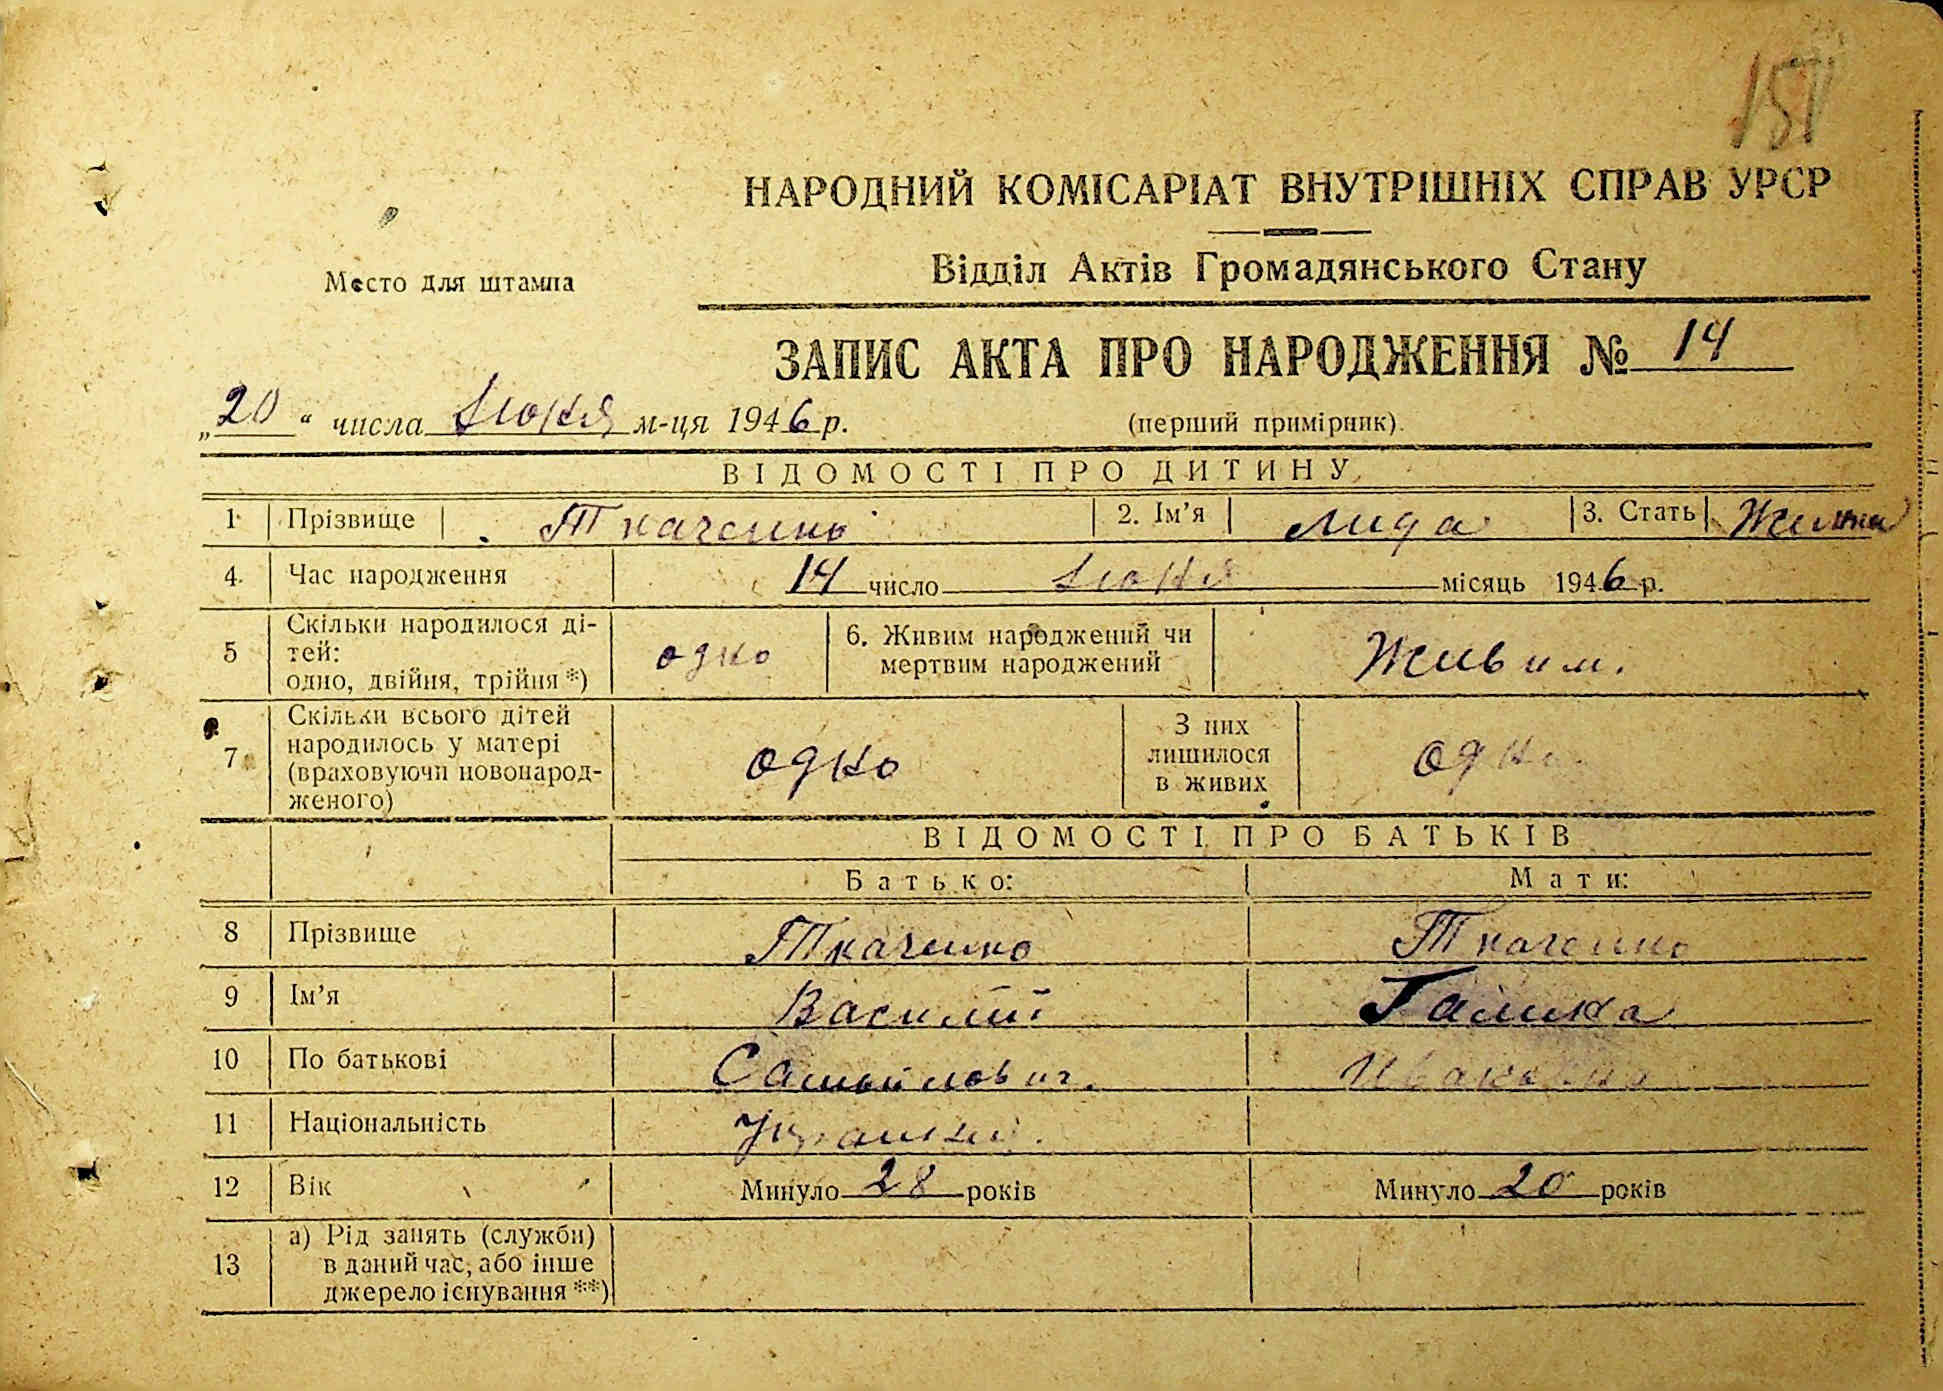 151
НАРОДНИЙ КОМІСАРІАТ ВНУТРІШНІХ СПРАВ УРСР
Место для штампа
Відділ Актів Громадянського Стану
ЗАПИС АКТА ПРО НАРОДЖЕННЯ № 14
„20“ числа Июня м-ця 1946 р.
(перший примірник).
ВІДОМОСТІ ПРО ДИТИНУ
1 Прізвище Ткаченко 2. Ім’я Лида 3. Стать
4. Час народження 14 число Июня місяць 1946 р.
5 Скільки народилося ді-
тей:
одно, двійня, трійня*) одно
6. Живим народжений чи
мертвим народжений Живим.
7 Скільки всього дітей
народилось у матері
(враховуючи новонарод-
женого) одно
З них
лишилося
в живих одно
ВІДОМОСТІ ПРО БАТЬКІВ
Батько: Мати:
8 Прізвище Ткаченко Ткаченко
9 Ім’я Василий Галина
10 По батькові Самойлович. Ивановна
11 Національність
12 Вік Минуло 28 років Минуло 20 років
13 а) Рід занять (служби)
в даний час, або інше
джерело існування**)